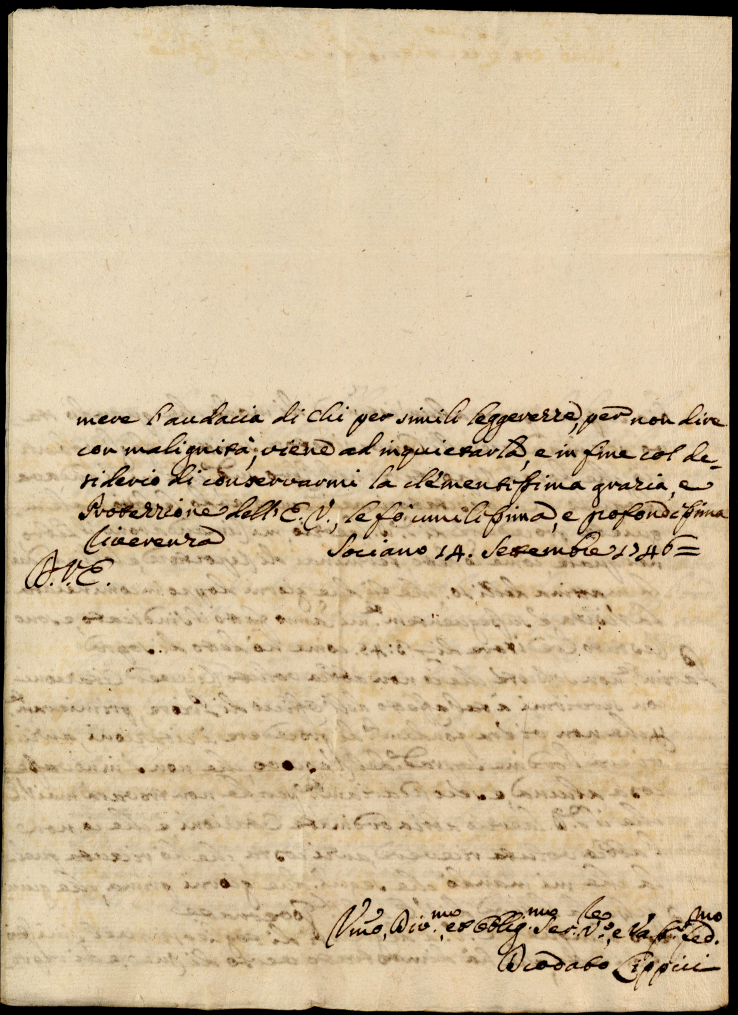 mere l'audacia di chi per simili leggerezze, per non dire
con malignità, viene ad inquietarla, e in fine col de-
siderio di conservarmi la clementissima grazia, e
Protezzione dell'E. V., le fò umilissima, e profondissima
riverenza Sociano 14. Settembre 1746=
D. V. E.
Umo, Divmo, et Obbligmo Ser.re V.o, e Vass.
Diodato Lippici